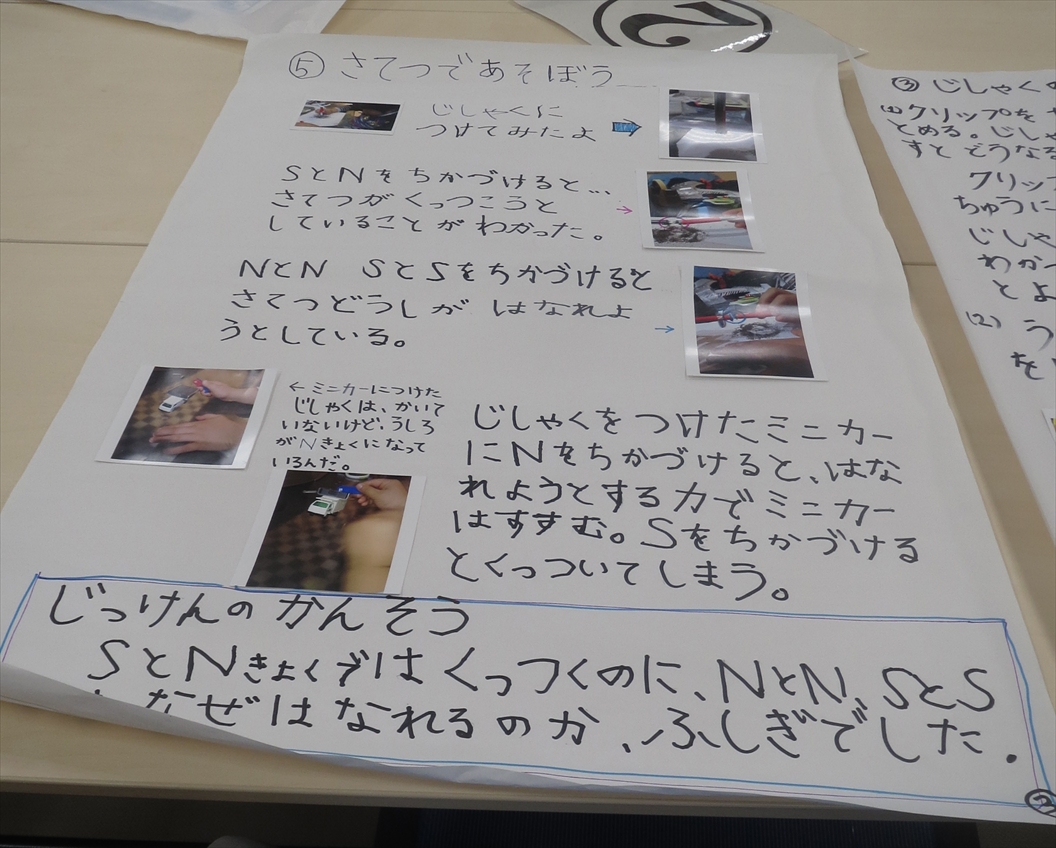 2
⑤ さてつであそぼう
じしゃくに
つけてみたよ
SとNをちかづけると…
さてつがくっつこうと
していることがわかった。
NとN SとSをちかづけると
さてつどうしが はなれよ
うとしている。
←ミニカーにつけた
じしゃくは、かいて
いないけど、うしろ
がNきょくになって
いるんだ。
じしゃくをつけたミニカー
にNをちかづけると、はな
れようとする力でミニカー
はすすむ。Sをちかづける
とくっついてしまう。
じっけんのかんそう
SとNきょくではくっつくのに、NとN、SとS
なぜはなれるのか、ふしぎでした.
②
③ じしゃくの
(1)クリップを
とめる。じしゃ
すと どうなる
クリップ
ちゅうに
じしゃ
わかっ
とよ
(2) う
を